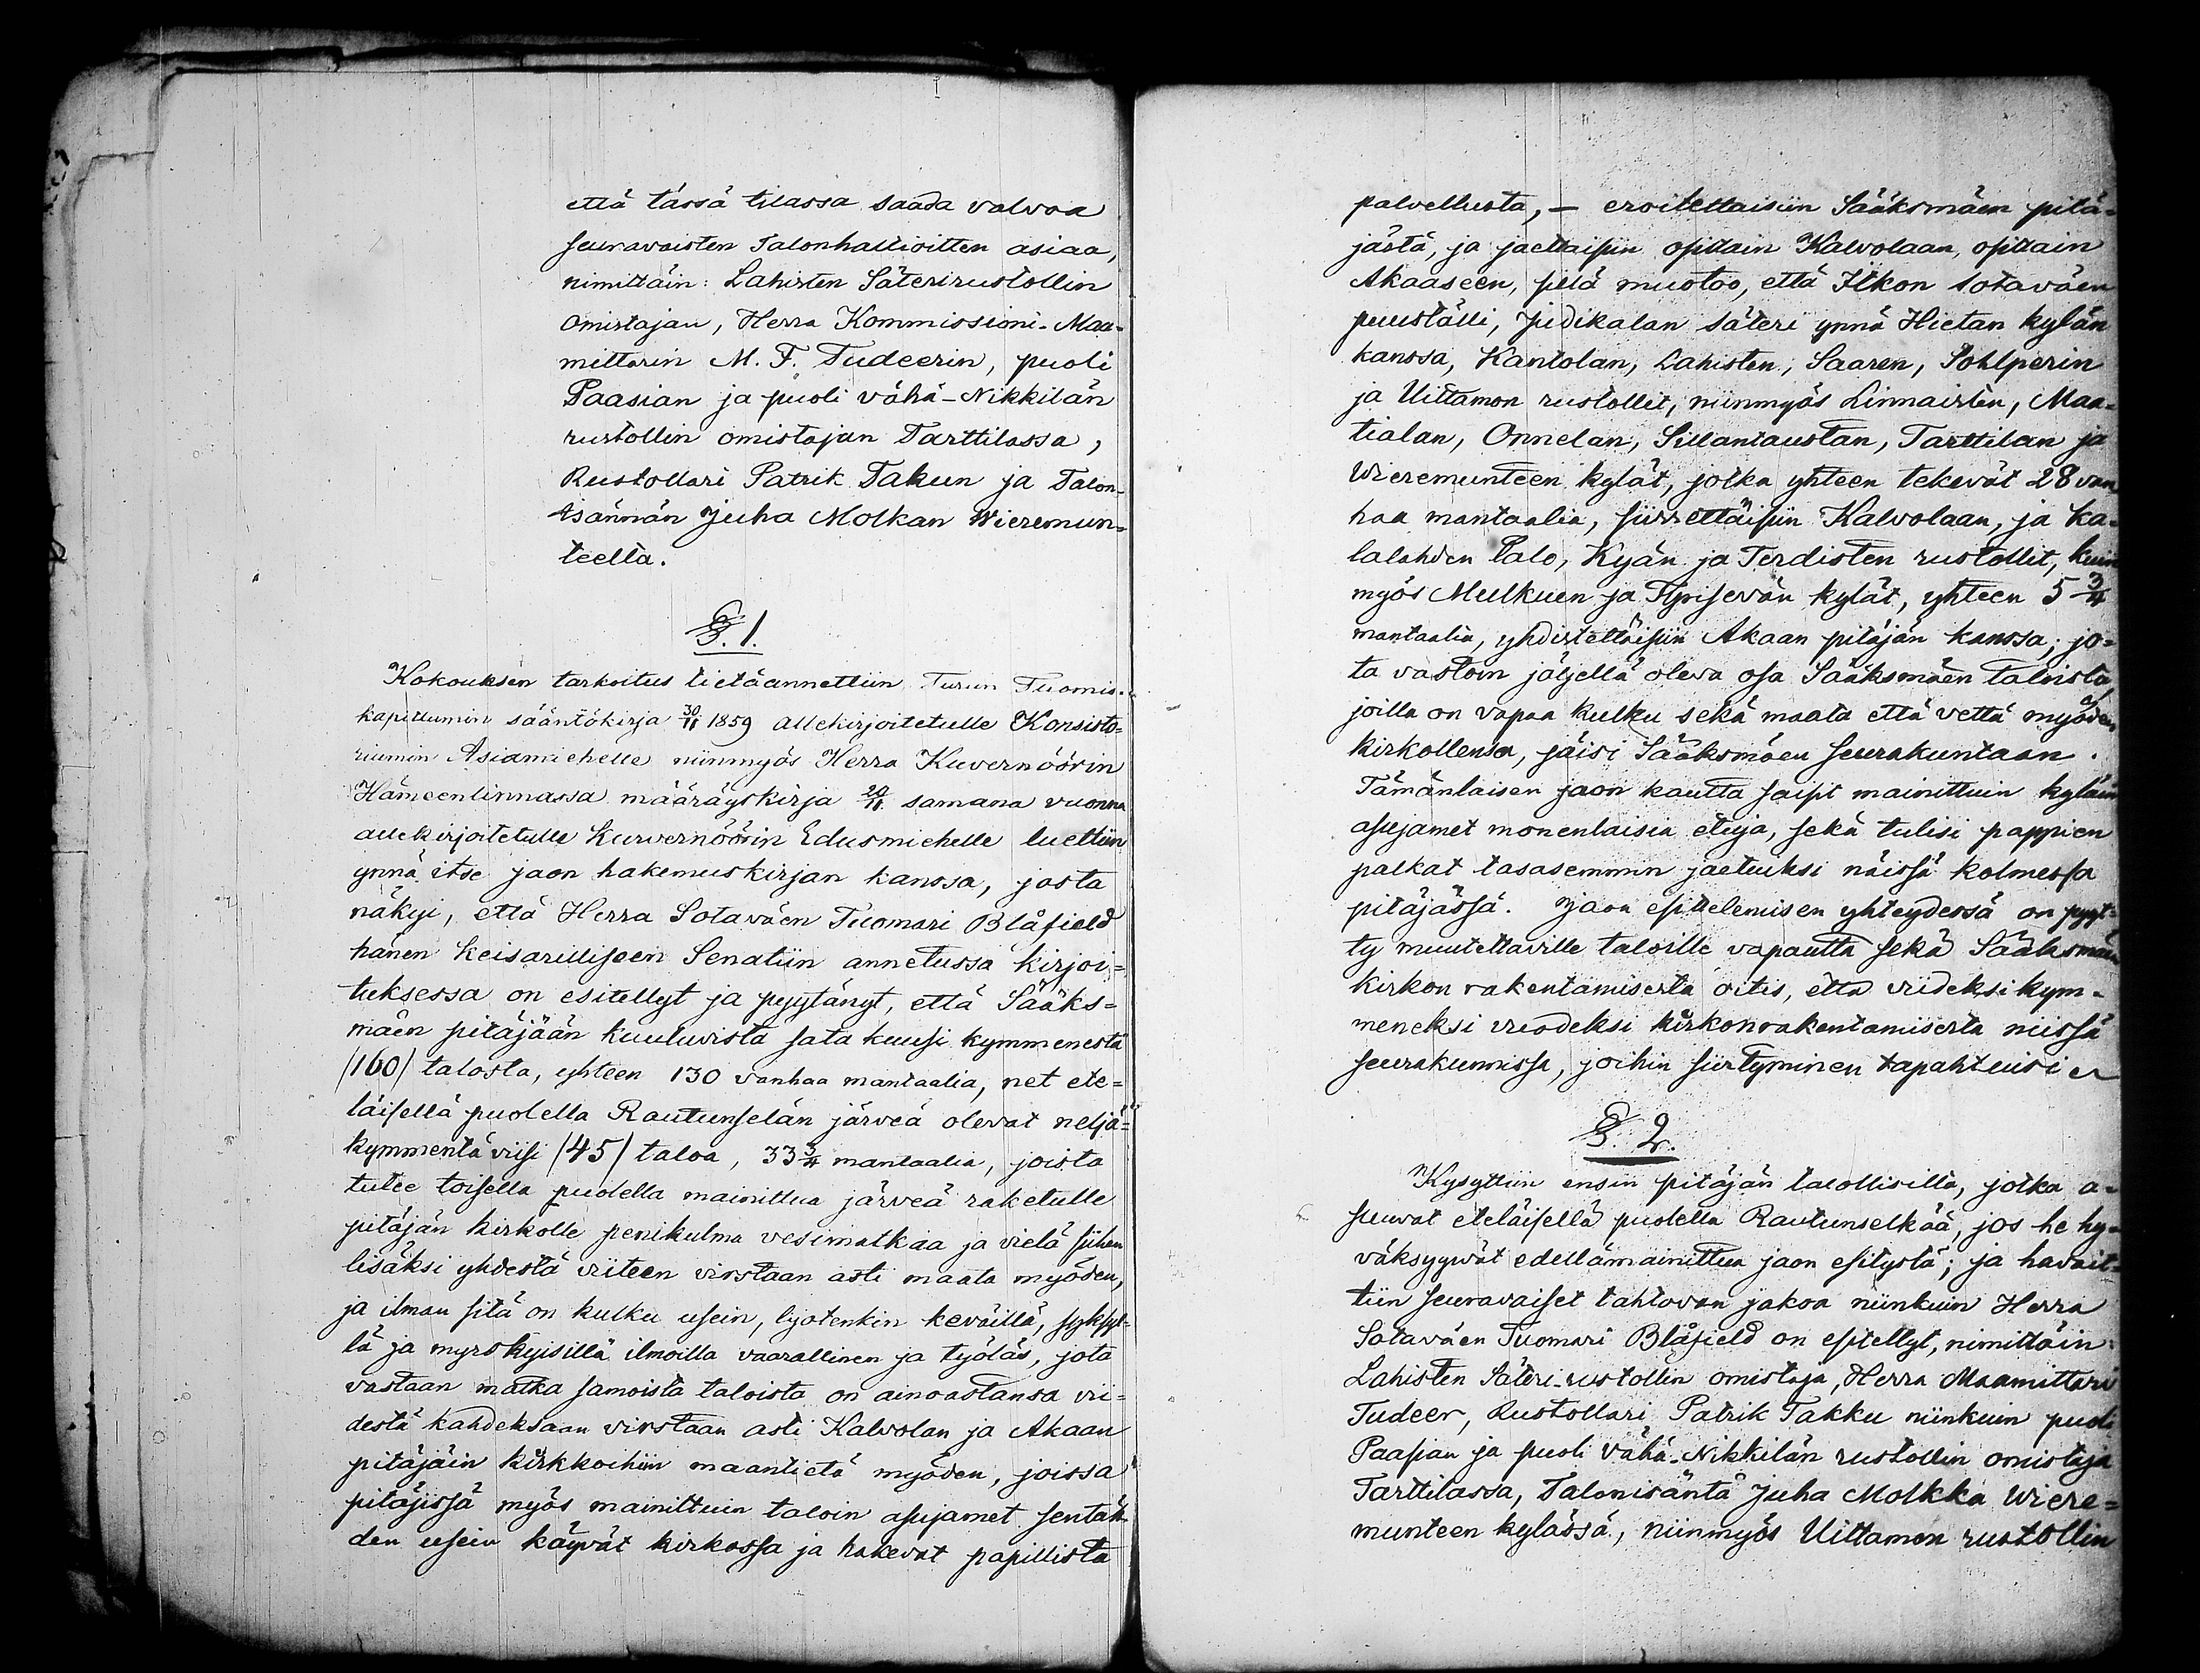 että tässä tilassa saada valvoa
seuravaisten Talonhaltioitten asiaa,
nimittäin: Lahisten Säterirustollin
Omistajan, Herra Kommissioni-Maa-
mittarin M. F. Tudeerin, puoli
Paasian ja puoli vähä-Nikkilän
rustollin omistajan Tarttilassa,
Rustollari Patrik Takun ja Talon-
isännän Juha Molkan Wieremun=
teella.
§. 1.
Kokouksen tarkoitus tietäannettiin Turun Tuomio-
kapitlumin sääntökirja 30/11 1859 allekirjoitetulle Konsisto=
riumin Asiamiehelle niinmyös Herra Kuvernöörin
Hämeenlinnassa määräyskirja 29/11 samana vuonna
allekirjoitetulle Kuvernöörin Edusmiehelle luettiin
ynnä itse jaon hakemuskirjan kanssa, josta
näkyi, että Herra Sotaväen Tuomari Blåfield
hänen Keisarilliseen Senatiin annetussa kirjoi=
tuksessa on esitellyt ja pyytänyt, että Sääks=
mäen pitäjään kuuluvista sata kuusi kymmenestä
/160/ talosta, yhteen 130 vanhaa mantaalia, net ete=
läisellä puolella Rautunselän järveä olevat neljä=
kymmentä viisi /45/ taloa, 33 3/4 mantaalia, joista
tulee toisella puolella mainittua järveä raketulle
pitäjän kirkolle penikulma vesimatkaa ja vielä siihen
lisäksi yhdestä viiteen virstaan asti maata myöden,
ja ilman sitä on kulku usein, liyotenkin keväillä, syksyl=
lä ja myrskyisillä ilmoilla vaarallinen ja työläs, jota
vastaan matka samoista taloista on ainoastansa vii=
destä kahdeksaan virstaan asti Kalvolan ja Akaan
pitäjäin kirkkoihin maantietä myöden, joissa
pitäjissä myös mainittuin taloin asujamet sentäh-
den usein käyvät kirkossa ja hakevat papillista
palvellusta, — eroitettaisiin Sääksmäen pitä=
jästä, ja jaettaisiin osittain Kalvolaan, osittain
Akaaseen, sillä muotoo, että Ilkon sotaväen
puuställi, Judikalan säteri ynnä Hietan kylän
kanssa, Kantolan, Lahisten, Saaren, Sohlperin
ja Uittamon rustollit, niinmyös Linnaisten, Maa=
tialan, Onnelan, Sillantaustan, Tarttilan ja
Wieremunteen kylät, jotka yhteen tekevät 28 van
haa mantaalia, siirrettäisiin Kalvolaan, ja Ka=
lalahden Talo, Kyän ja Terdisten rustollit, kuin
myös Mulkuen ja kylät, yhteen 5 3/4
mantaalia, yhdistettäisiin Akaan pitäjän kanssa; jo=
ta vastoin jäljellä oleva osa Sääksmäen taloista
joilla on vapaa kulku sekä maata että vettä myöden
kirkollensa, jäisi Sääksmäen seurakuntaan.
Tämänlaisen jaon kautta saisit mainittuin kyläin
asujamet monenlaisia etuja, sekä tulisi pappien
palkat tasasemmin jaetuiksi näissä kolmessa
pitäjässä. Jaon esittelemisen yhteydessä on pyyt=
ty muutettaville taloille vapautta sekä Sääksmäen
kirkon rakentamisesta oitis, että viideksikym-
meneksi vuodeksi kirkonrakentamisesta niissä
seurakunnissa, joihin siirtyminen tapahtuisi
§ 2.
Kysyttiin ensin pitäjän talollisilla, jotka a=
suuvat eteläisellä puolella Rautunselkää, jos he hy=
väksyyvät edellämainittua jaon esitystä; ja havait=
tiin seuravaiset tahtovan jakoa niinkuin Herra
Sotaväen Tuomari Blåfield on esitellyt, nimittäin:
Lahisten Säteri-rustollin omistaja, Herra Maamittari
Tudeer, Rustollari Patrik Takku niinkuin puoli
Paasian ja puoli Vähä-Nikkilän rustollin omistaja
Tarttilassa, Talonisäntä Juha Molkka Wiere=
munteen kylässä, niinmyös Uittamon rustollin